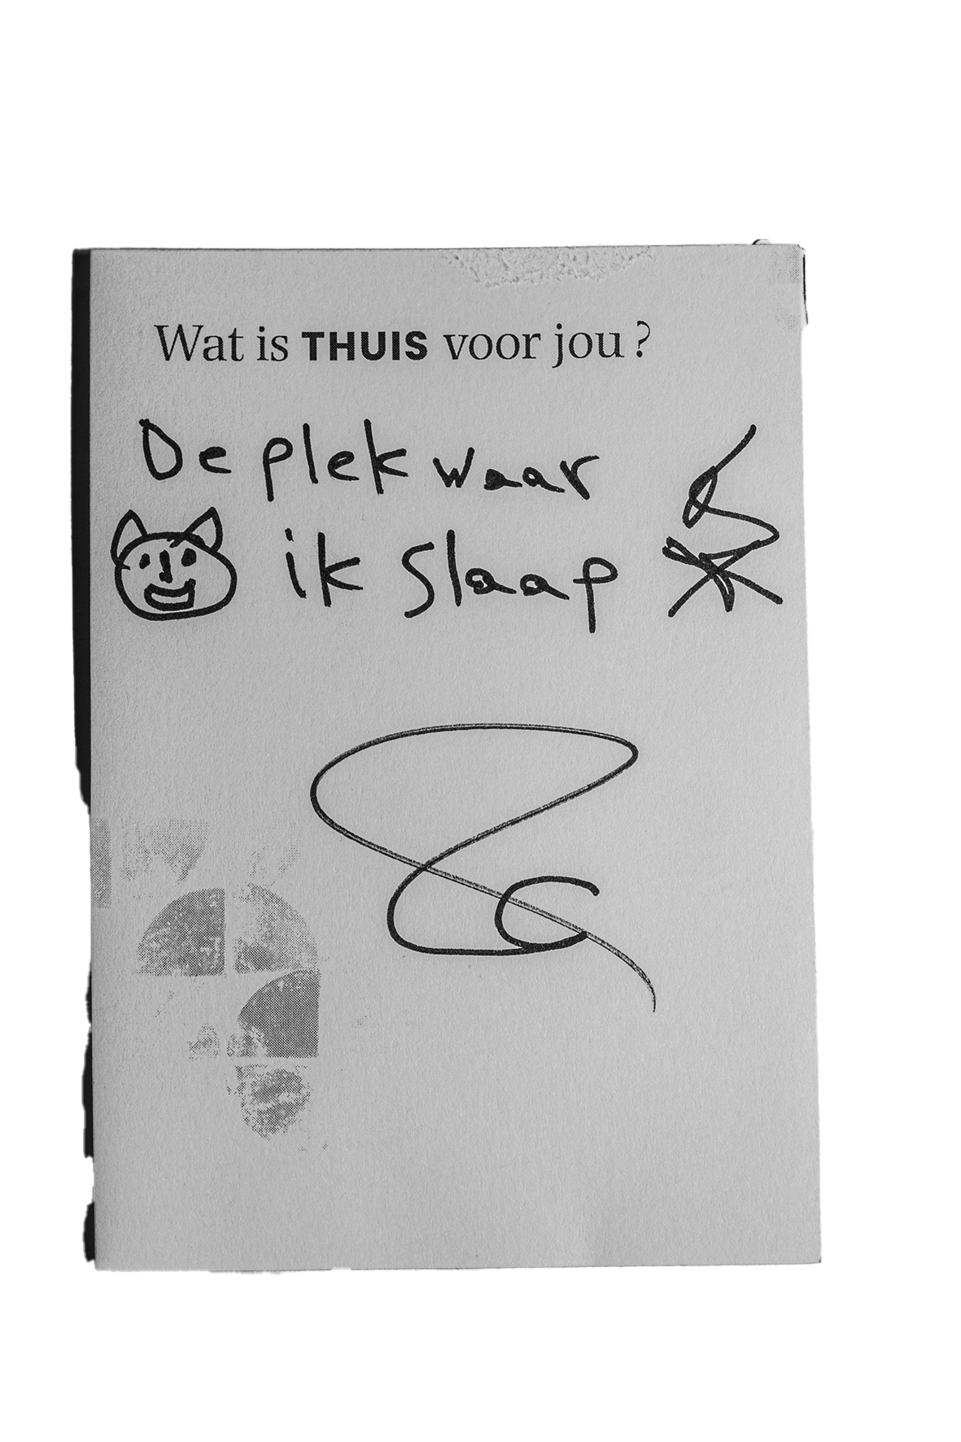 Wat is THUIS voor jou?
De plek waar
ik slaap